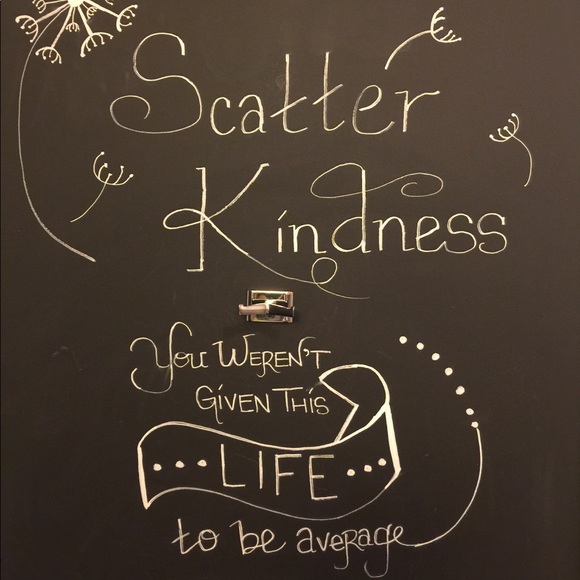 Scatter
Kindness
You WEREN'T
GiVEN THiS
LIFE
to be aveRage